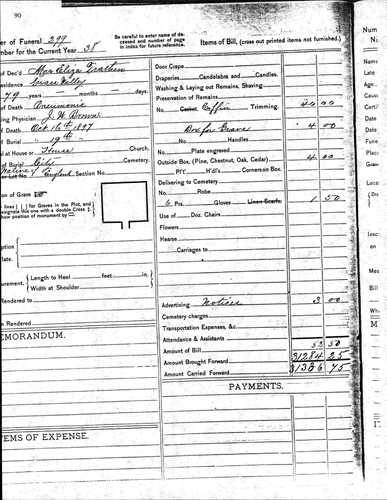 90
er of Funeral 299
umber for the Current Year 38
Be careful to enter name of deceased and number of page in index for future reference.
Items of Bill, (cross out printed items not furnished.)
of Dec'd Mrs Eliza Trathen
esidence Grass Valley
79 years — months — days.
of Death Pneumonia
ing Physician J. W. Brown
of Death Oct 16th 1897
of Burial " 19th "
al at House or House Church.
of Burial City Cemetery.
Native of England Section No
on of Grave
lines ] for Graves in the Plot, and
esignate this one with a double Cross
how position of monument by
iption
Plate.
urement, Length to Heel feet in.
Width at Shoulder
Rendered to
n Rendered
EMORANDUM.
EMS OF EXPENSE.
Door Crape
Draperies Candelabra and Candles.
Washing & Laying out Remains, Shaving
Preservation of Remains
No. Casket Coffin Trimming. 40 00
Box for Grave 4 00
No. Handles
Plate engraved
Outside Box (Pine, Chestnut, Oak, Cedar) 4 00
Pl't H'd'l's Corners on Box.
Delivering to Cemetery
No. Robe
6 Prs. Gloves Linen Scarfs. 1 50
Use of Doz. Chairs
Flowers
Hearse
Carriages to
Advertising Notice 3 00
Cemetery charges
Transportation Expenses, &c
Attendance & Assistants
Amount of Bill 52 50
Amount Brought Forward 31284 25
Amount Carried Forward 31336 75
PAYMENTS.
Num
Na
Late
Age
Cau
Cert
Date
Fune
Plac
Grav
Loca
Insc
on
Mea
Bill
Whe
M
IT